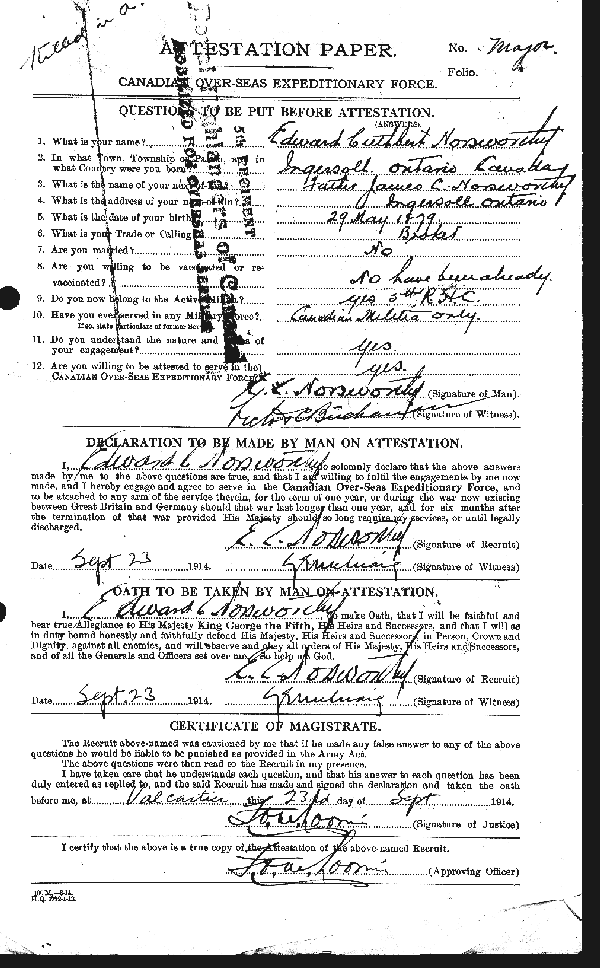 Killed in a.
ATTESTATION PAPER.
No. Major
Folio.
CANADIAN OVER-SEAS EXPEDITIONARY FORCE.
5th REGIMENT
Royal Highlanders of Canada
MOBILIZED FOR OVERSEAS
QUESTIONS TO BE PUT BEFORE ATTESTATION.
(ANSWERS)
1. What is your name? Edward Cuthbert Norsworthy
2. In what Town, Township or Parish, and in
what Country were you born? Ingersoll Ontario Canada
3. What is the name of your next-of-kin? Father James C. Norsworthy
4. What is the address of your next-of-kin? Ingersoll Ontario
5. What is the date of your birth? 29 May 1879
6. What is your Trade or Calling? Broker
7. Are you married? No
8. Are you willing to be vaccinated or re-
vaccinated? No have been already.
9. Do you now belong to the Active Militia? yes 5th R.H.C.
10. Have you ever served in any Military Force? Canadian Militia only.
If so, state particulars of former Service.
11. Do you understand the nature and terms of
your engagement? yes
12. Are you willing to be attested to serve in the
CANADIAN OVER-SEAS EXPEDITIONARY FORCE? yes.
E. C. Norsworthy (Signature of Man).
(Signature of Witness).
DECLARATION TO BE MADE BY MAN ON ATTESTATION.
I, Edward C Norsworthy do solemnly declare that the above answers
made by me to the above questions are true, and that I am willing to fulfil the engagements by me now
made, and I hereby engage and agree to serve in the Canadian Over-Seas Expeditionary Force, and
to be attached to any arm of the service therein, for the term of one year, or during the war now existing
between Great Britain and Germany should that war last longer than one year, and for six months after
the termination of that war provided His Majesty should so long require my services, or until legally
discharged.
E. C. Norsworthy (Signature of Recruit)
Date Sept 23 1914. (Signature of Witness)
OATH TO BE TAKEN BY MAN ON ATTESTATION.
I, Edward C Norsworthy do make Oath, that I will be faithful and
bear true Allegiance to His Majesty King George the Fifth, His Heirs and Successors, and that I will as
in duty bound honestly and faithfully defend His Majesty, His Heirs and Successors, in Person, Crown and
Dignity, against all enemies, and will observe and obey all orders of His Majesty, His Heirs and Successors,
and of all the Generals and Officers set over me. So help me God.
E. C. Norsworthy (Signature of Recruit)
Date Sept. 23 1914. (Signature of Witness)
CERTIFICATE OF MAGISTRATE.
The Recruit above-named was cautioned by me that if he made any false answer to any of the above
questions he would be liable to be punished as provided in the Army Act.
The above questions were then read to the Recruit in my presence.
I have taken care that he understands each question, and that his answer to each question has been
duly entered as replied to, and the said Recruit has made and signed the declaration and taken the oath
before me, at Valcartier this 23rd day of Sept 1914.
(Signature of Justice)
I certify that the above is a true copy of the Attestation of the above-named Recruit.
(Approving Officer)